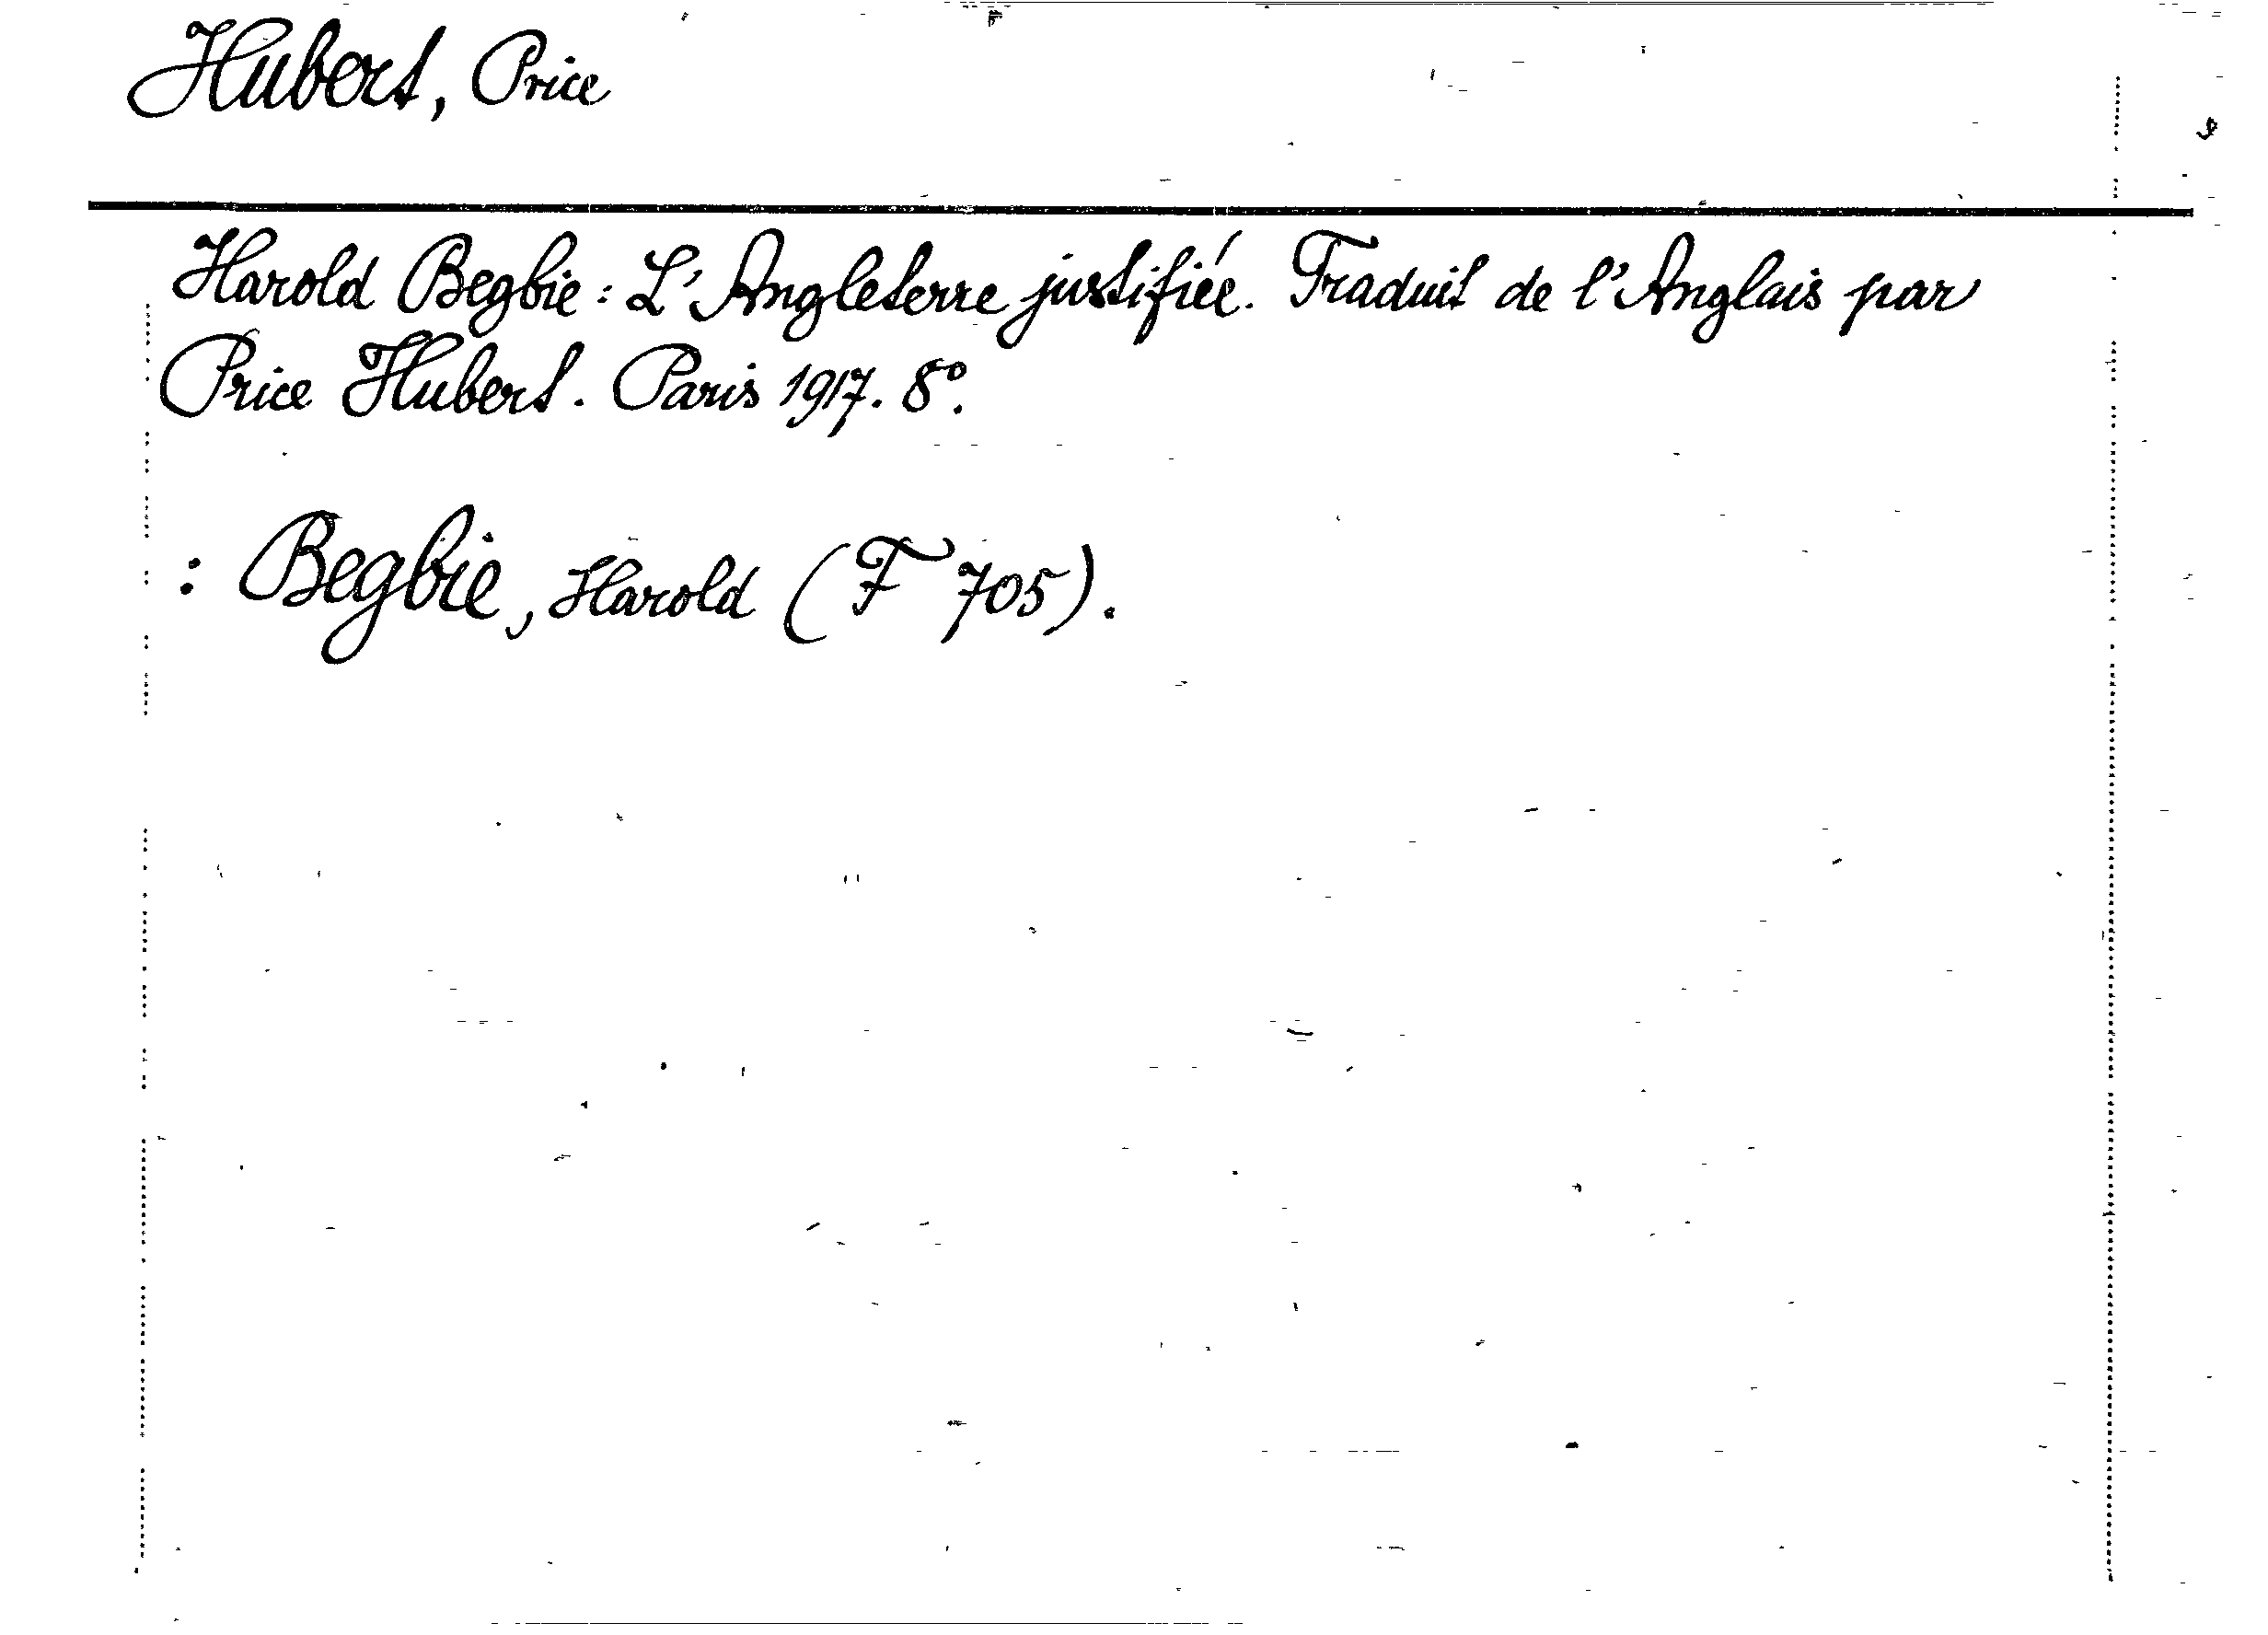 Hubert, Price
Harold Begbie: L'Angleterre justifiée. Traduit de l'Anglais par
Price Hubert. Paris 1917. 8°.
: Begbie, Harold (F 705).